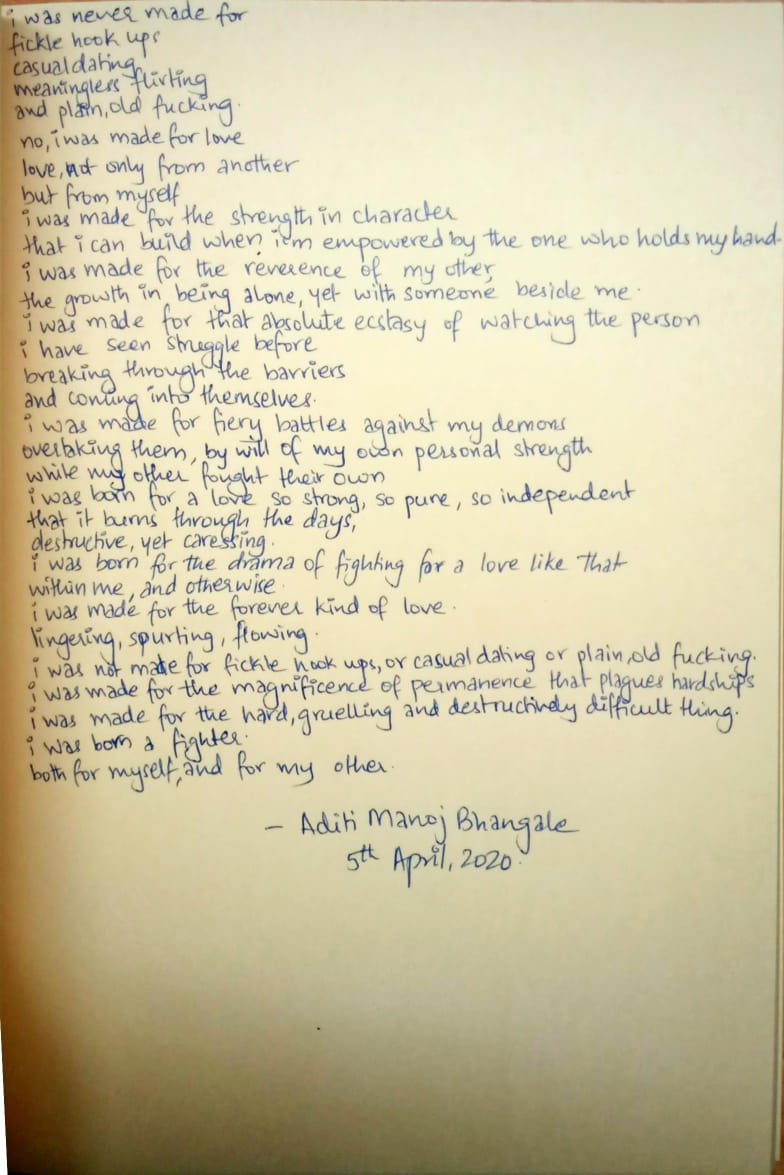 i was never made for
fickle hook ups
casual dating
meaningless flirting
and plain, old fucking.
no, i was made for love
love, not only from another
but from myself
i was made for the strength in character
that i can build when i'm empowered by the one who holds my hand.
i was made for the reverence of my other,
the growth in being alone, yet with someone beside me.
i was made for that absolute ecstasy of watching the person
i have seen struggle before
breaking through the barriers
and coming into themselves.
i was made for fiery battles against my demons
overtaking them, by will of my own personal strength
while my other fought their own
i was born for a love so strong, so pure, so independent
that it burns through the days,
destructive, yet caressing.
i was born for the drama of fighting for a love like that
within me, and otherwise.
i was made for the forever kind of love.
lingering, spurting, flowing.
i was not made for fickle hook ups, or casual dating or plain, old fucking.
i was made for the magnificence of permanence that plagues hardships
i was made for the hard, gruelling and destructively difficult thing.
i was born a fighter.
both for myself, and for my other.
– Aditi Manoj Bhangale
5th April, 2020.